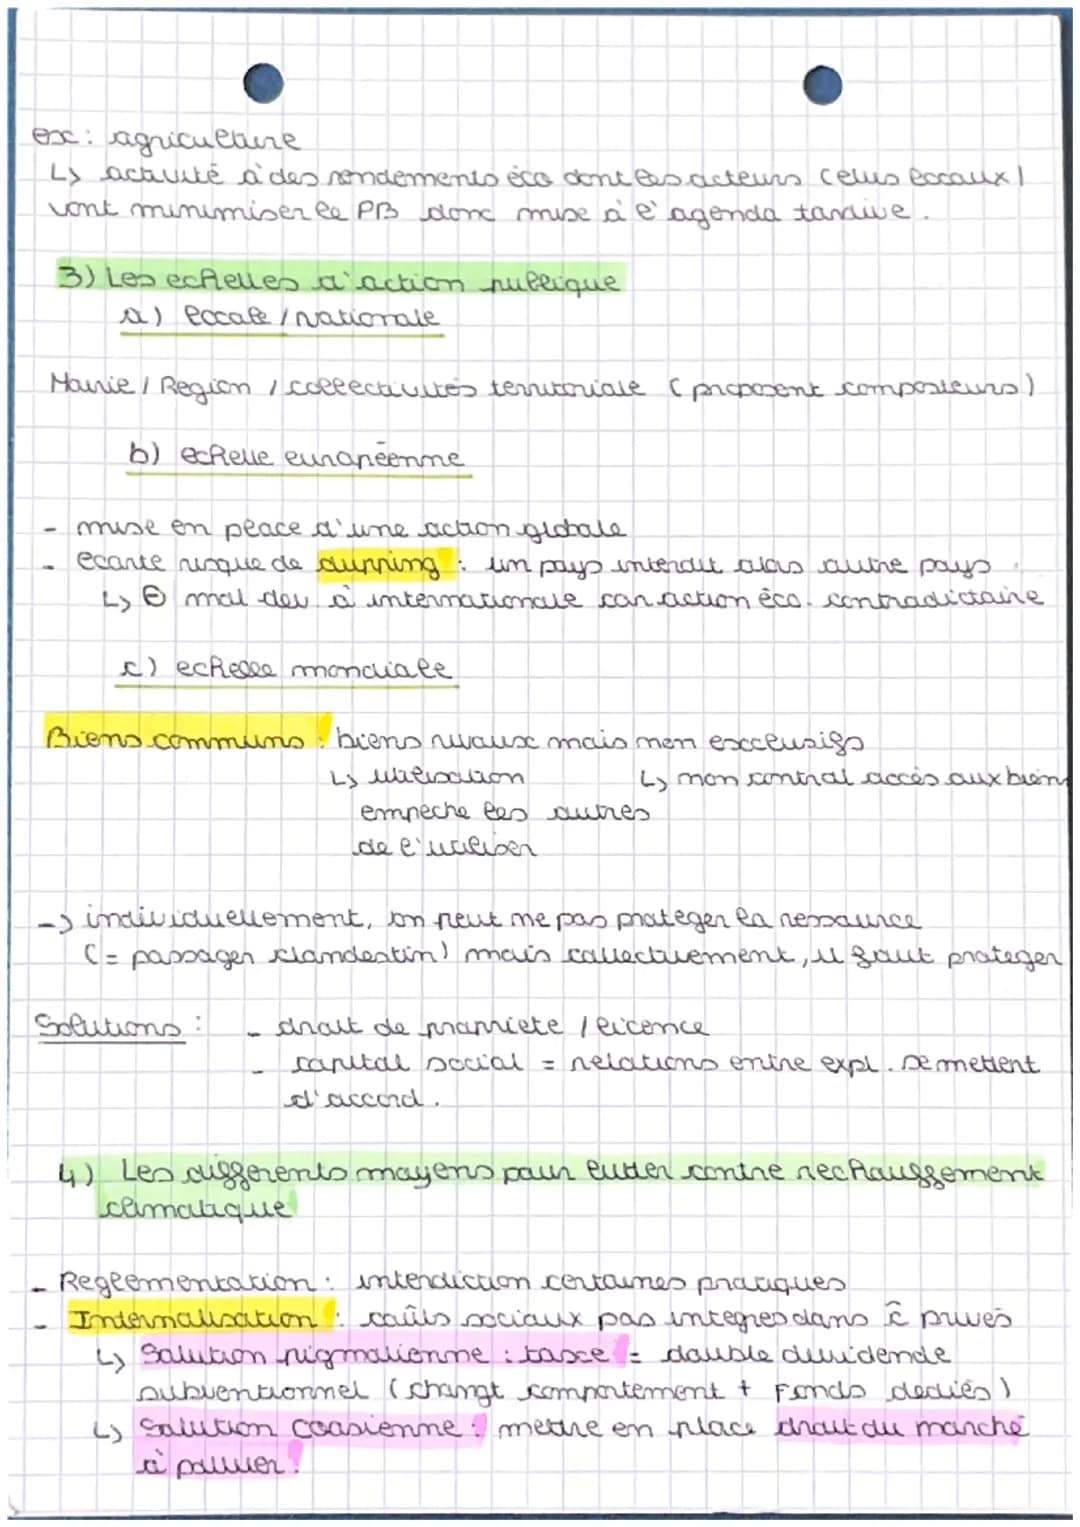 ex: agriculture
↳ activité à des rendements éco dont les acteurs (elus locaux)
vont minimiser le PB donc mise à l'agenda tardive.
3) Les echelles d'action publique
a) locale / nationale
Mairie / Region / collectivités territoriale (proposent composteurs)
b) echelle européenne
- mise en place d'une action globale
- ecarte risque de dumping : un pays interdit alors autre pays
↳ ⊖ mal dev à internationale car action éco. contradictoire
c) echelle mondiale
Biens communs : biens rivaux mais non exclusifs
↳ utilisation ↳ non control accès aux biens
empeche les autres
de l'utiliser
-> individuellement, on peut ne pas proteger la ressource
(= passager clandestin) mais collectivement, il faut proteger
Solutions : - droit de propriete / licence
- capital social = relations entre expl. se mettent
d'accord.
4) Les differents moyens pour lutter contre rechauffement
climatique
- Reglementation : interdiction certaines pratiques
- Internalisation : coûts sociaux pas integres dans ĉ privés
↳ Solution pigmalienne : taxe = double dividende
subventionnel (changt comportement + Fonds dediés)
↳ Solution Coasienne : mettre en place droit du marché
à polluer.